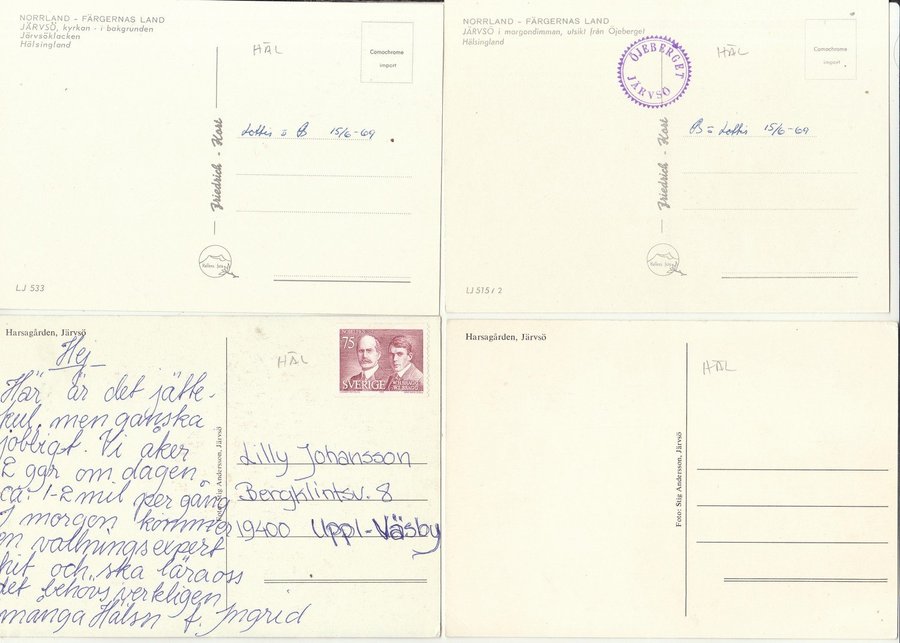 NORRLAND - FÄRGERNAS LAND
JÄRVSÖ, kyrkan - i bakgrunden
Järvsöklacken
Hälsingland
HÄL
Comochrome
import
Lottis = B 15/6-69
Friedrich - Kort
LJ 533
NORRLAND - FÄRGERNAS LAND
JÄRVSÖ i morgondimman, utsikt från Öjeberget
Hälsingland
ÖJEBERGET
JÄRVSÖ
HÄL
Comochrome
import
B = Lottis 15/6-69
Friedrich - Kort
LJ 515/2
Harsagården, Järvsö
Hej
Här är det jätte-
kul, men ganska
jobbigt. Vi åker
2 ggr om dagen
ca: 1-2 mil per gång
I morgon kommer
en vallningsexpert
hit och ska lära oss
det behövs verkligen
många Hälsn f. Ingrid
Foto: Stig Andersson, Järvsö
HÄL
75
SVERIGE
W.H. BRAGG
W.L. BRAGG
Lilly Johansson
Bergklintsv. 8
19400 Uppl-Väsby
Harsagården, Järvsö
HÄL
Foto: Stig Andersson, Järvsö